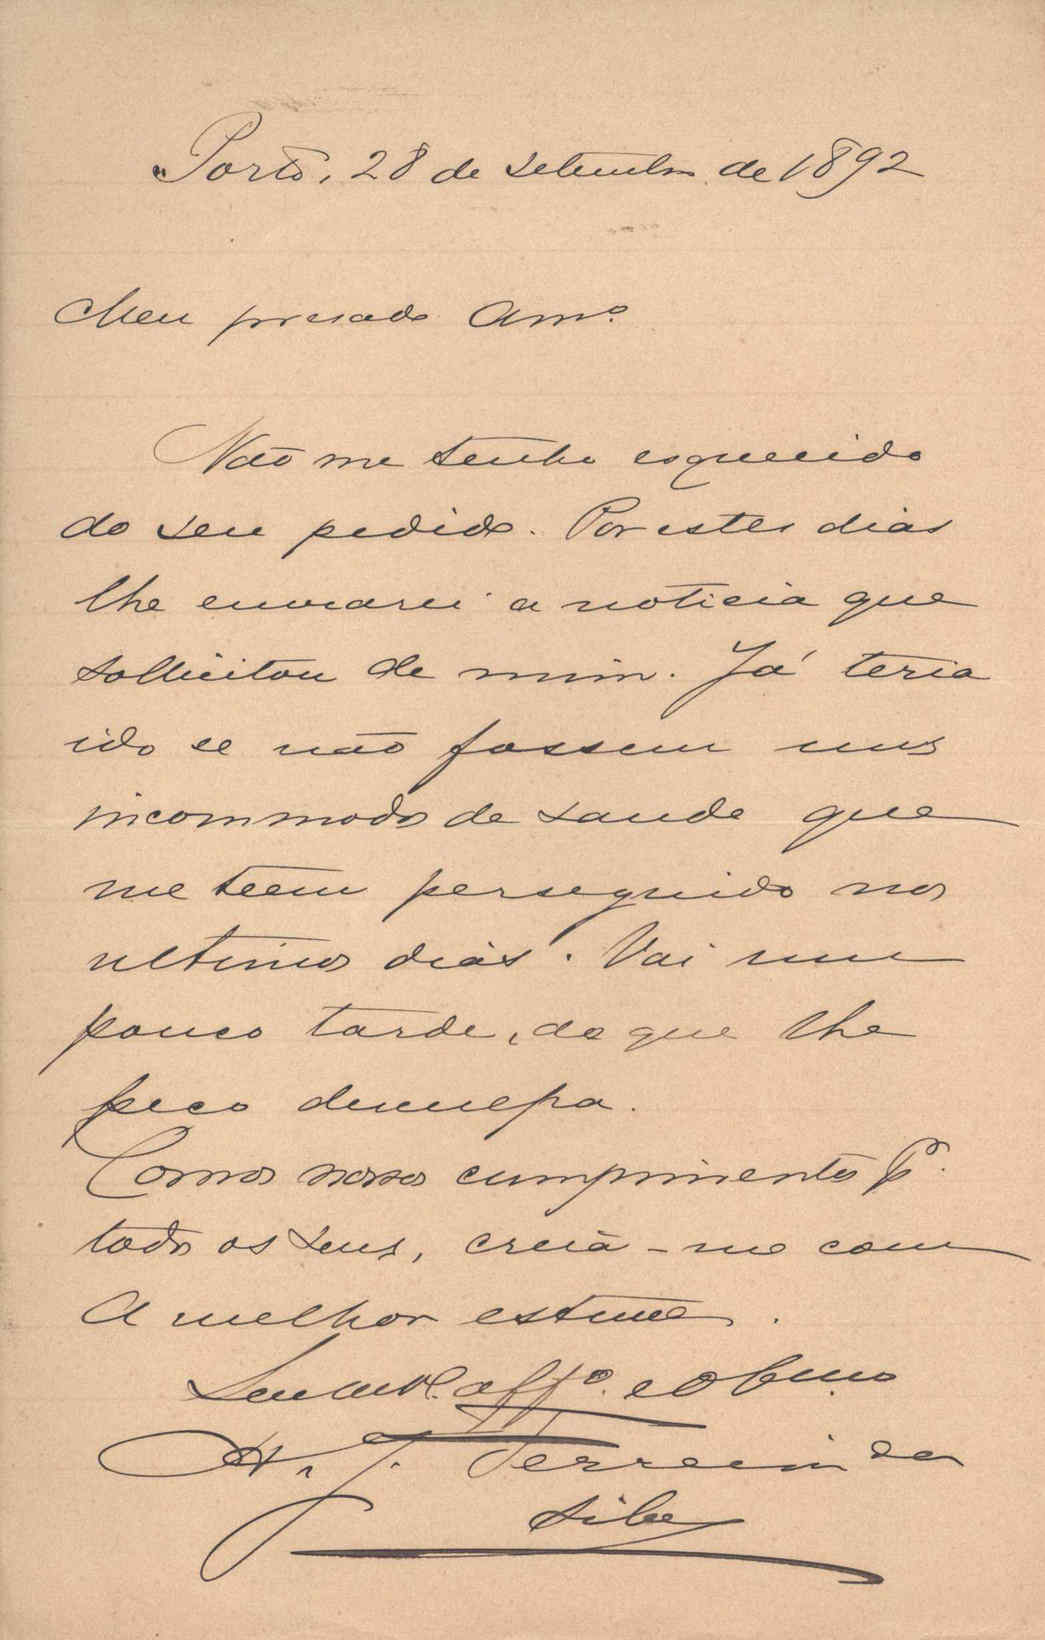 Porto, 28 de setembro de 1892
Meu presado Am.º
Não me tenho esquecido
do seu pedido. Por estes dias
lhe enviarei a noticia que
sollicitou de mim. Já teria
ido se não fossem uns
incommodos de saude que
me teem perseguido nos
ultimos dias. Vai um
pouco tarde, do que lhe
peço desculpa.
Com os nossos cumprimentos p.ª
todos os seus, creia-me com
a melhor estima.
Seu aff.º e Obg.mo
A. J. Ferreira da
Silva